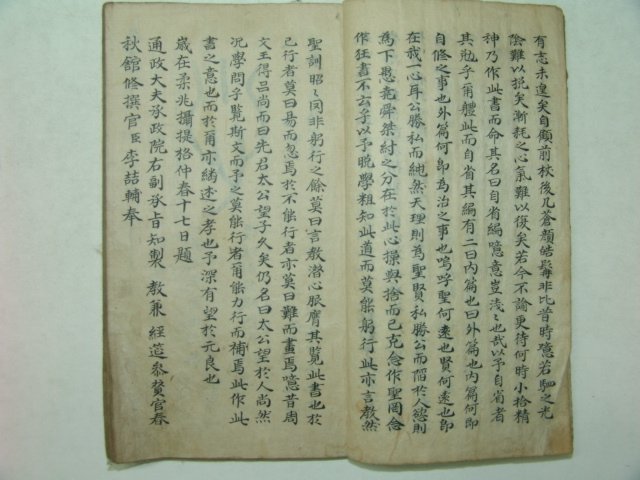 有志未遑矣自顧前杖後几蒼顔皓鬢非比昔時噫若駟之光
陰難以挽矣漸耗之心氣難以復矣若今不諭更待何時小拾精
神乃作此書而命其名曰自省編噫意豈淺之也哉以予自省者
其勉乎爾體此而自省其編有二曰内篇也曰外篇也内篇何即
自修之事也外篇何即爲治之事也嗚呼聖何遠也賢何遠也即
在我一心耳公勝私而純然天理則爲聖賢私勝公而陷於人慾則
爲下愚堯舜桀紂之分在於此心操與捨而已克念作聖罔念
作狂書不云乎以予晚學粗知此道而莫能躬行此亦言教然
聖訓昭昭同非躬行之餘莫曰言教潛心服膺其覧此書也於
已行者莫曰易而忽焉於不能行者亦莫曰難而畫焉噫昔周
文王得呂尚而曰先君太公望子久矣仍名曰太公望於人尚然
况學問乎覧斯文而予之莫能行者爾能力行而補焉此作此
書之意也而於爾亦繼述之孝也予深有望於元良也
歲在柔兆攝提格仲春十七日題
通政大夫承政院右副承旨知製 教兼 經筵參贊官春
秋館修撰官臣李喆輔奉